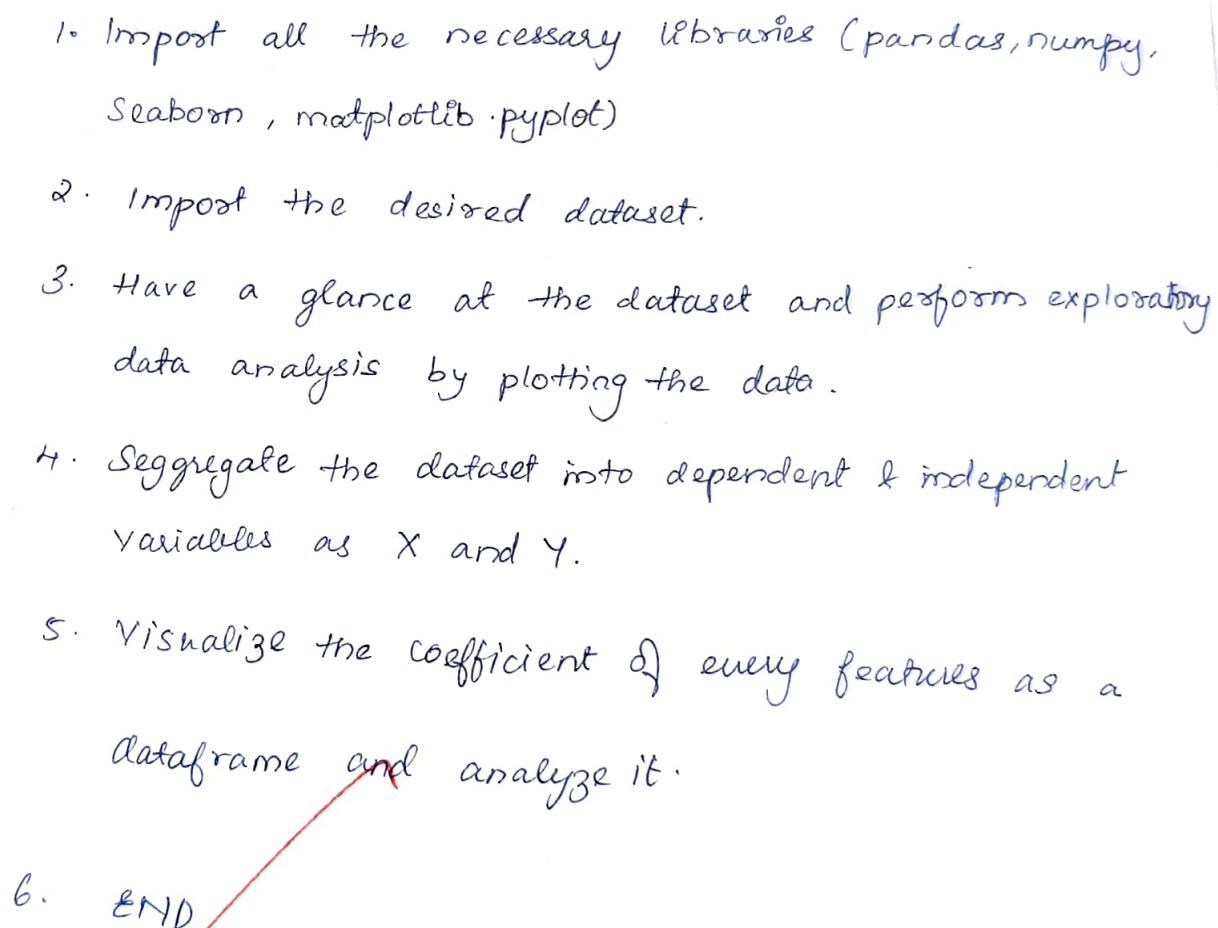 1. Import all the necessary libraries (pandas, numpy,
Seaborn, matplotlib.pyplot)
2. Import the desired dataset.
3. Have a glance at the dataset and perform exploratory
data analysis by plotting the data.
4. Seggregate the dataset into dependent & independent
variables as X and Y.
5. Visualize the coefficient of every features as a
dataframe and analyze it.
6. END